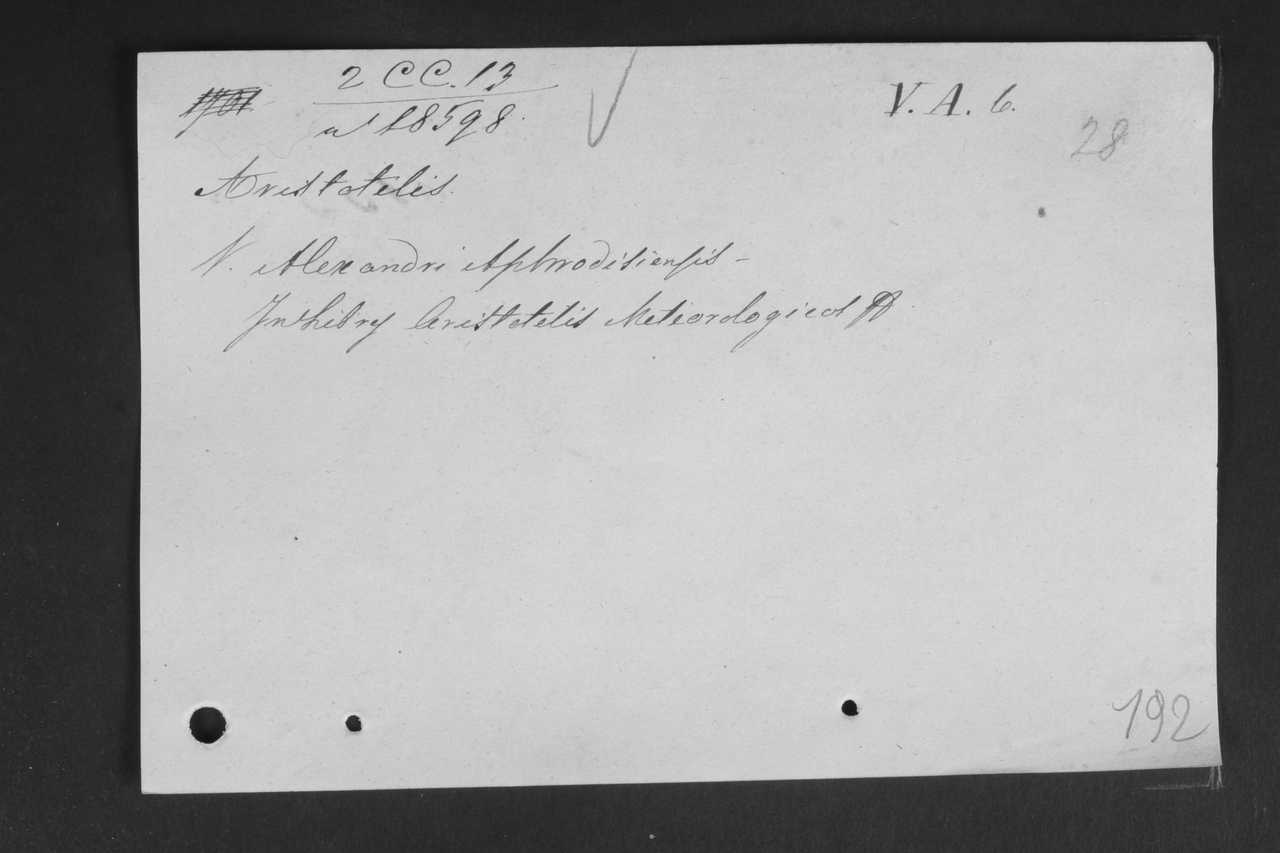 2 CC. 13
18598.
V. A. 6.
28
Aristotelis.
V. Alexandri Aphrodisiensis -
Aristotelis Meteorologicos
192